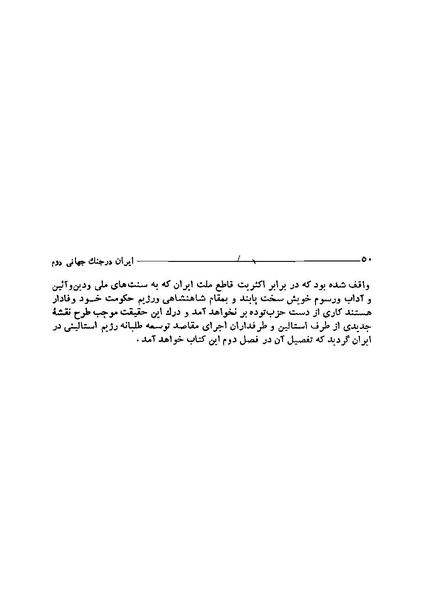 ۵۰ ایران درجنك جهانی دوم
واقف شده بود که در برابر اکثریت قاطع ملت ایران که به سنت‌های ملی ودین‌وآئین
و آداب ورسوم خویش سخت پابند و بمقام شاهنشاهی ورژیم حکومت خود وفادار
هستند کاری از دست حزب‌توده بر نخواهد آمد و درك این حقیقت موجب طرح نقشهٔ
جدیدی از طرف استالین و طرفداران اجرای مقاصد توسعه طلبانه رژیم استالینی در
ایران گردید که تفصیل آن در فصل دوم این کتاب خواهد آمد .